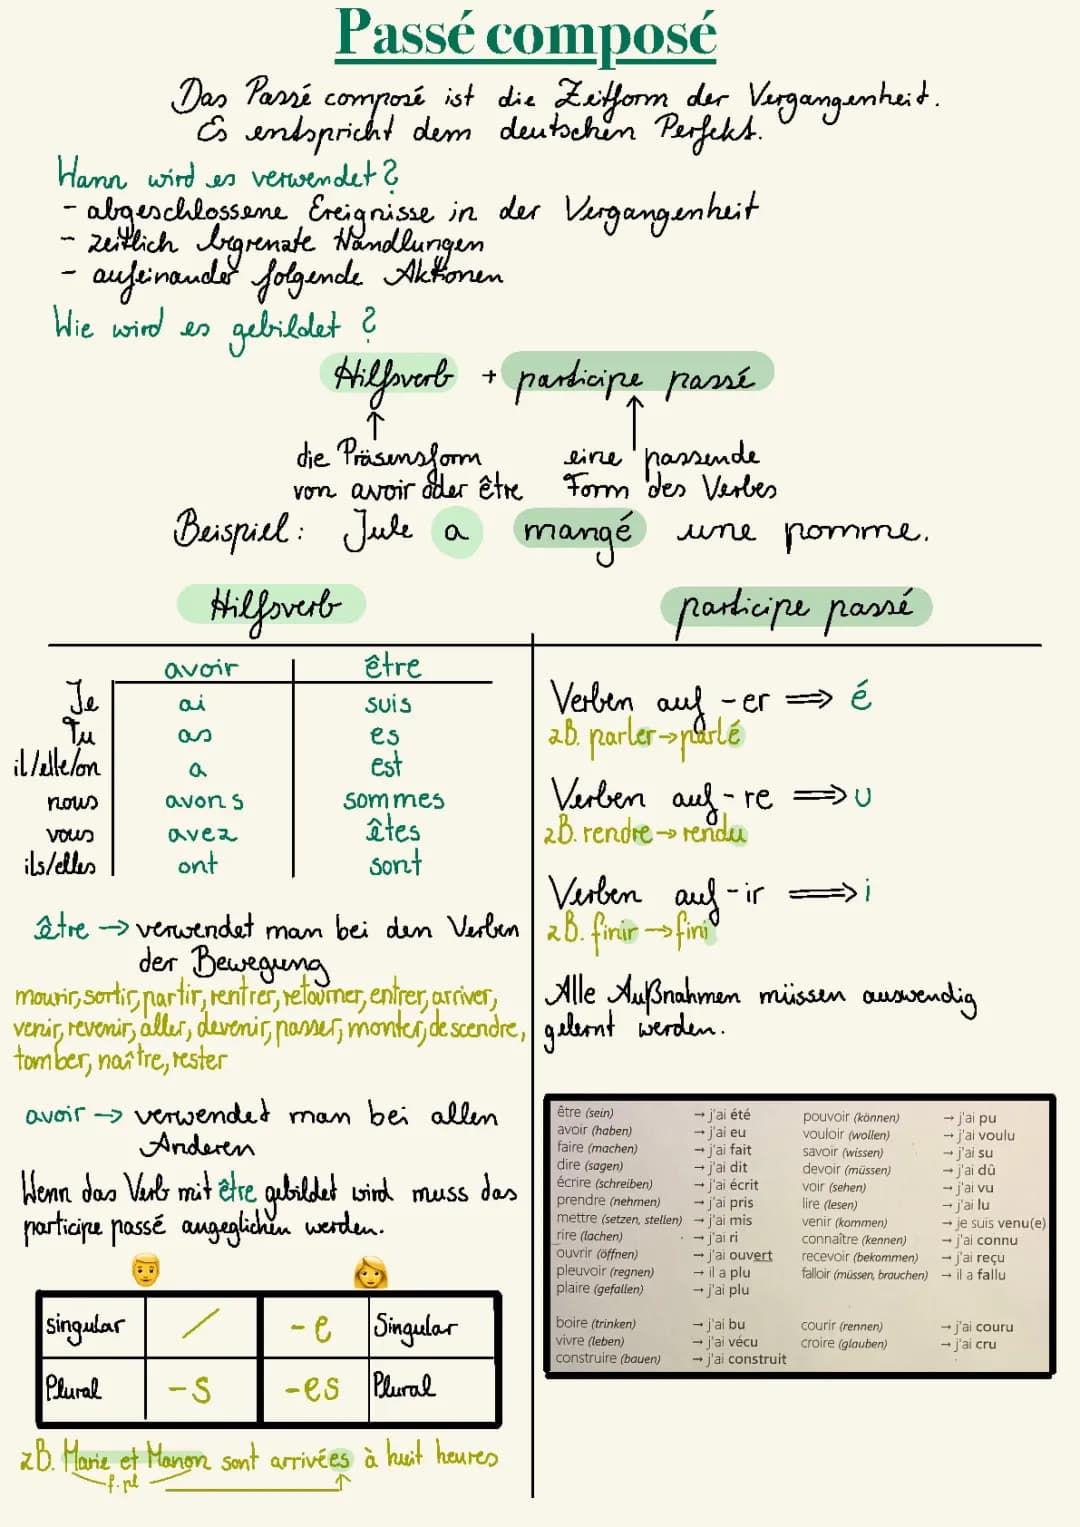 Passé composé
Das Passé composé ist die Zeitform der Vergangenheit.
Es entspricht dem deutschen Perfekt.
Wann wird es verwendet?
- abgeschlossene Ereignisse in der Vergangenheit
- zeitlich begrenzte Handlungen
- aufeinander folgende Aktionen
Wie wird es gebildet?
Hilfsverb + participe passé
die Präsensform
von avoir oder être
eine passende
Form des Verbes
Beispiel: Jule a mangé une pomme.
Hilfsverb
avoir être
Je ai suis
Tu as es
il/elle/on a est
nous avons sommes
vous avez êtes
ils/elles ont sont
être → verwendet man bei den Verben
der Bewegung
mourir, sortir, partir, rentrer, retourner, entrer, arriver,
venir, revenir, aller, devenir, passer, monter, descendre,
tomber, naître, rester
avoir → verwendet man bei allen
Anderen
Wenn das Verb mit être gebildet wird muss das
participe passé angeglichen werden.
Singular / -e Singular
Plural -s -es Plural
zB. Marie et Manon sont arrivées à huit heures
f. pl
participe passé
Verben auf -er ⟹ é
zB. parler → parlé
Verben auf -re ⟹ u
zB. rendre → rendu
Verben auf -ir ⟹ i
zB. finir → fini
Alle Außnahmen müssen auswendig
gelernt werden.
être (sein) → j'ai été
avoir (haben) → j'ai eu
faire (machen) → j'ai fait
dire (sagen) → j'ai dit
écrire (schreiben) → j'ai écrit
prendre (nehmen) → j'ai pris
mettre (setzen, stellen) → j'ai mis
rire (lachen) → j'ai ri
ouvrir (öffnen) → j'ai ouvert
pleuvoir (regnen) → il a plu
plaire (gefallen) → j'ai plu
boire (trinken) → j'ai bu
vivre (leben) → j'ai vécu
construire (bauen) → j'ai construit
pouvoir (können) → j'ai pu
vouloir (wollen) → j'ai voulu
savoir (wissen) → j'ai su
devoir (müssen) → j'ai dû
voir (sehen) → j'ai vu
lire (lesen) → j'ai lu
venir (kommen) → je suis venu(e)
connaître (kennen) → j'ai connu
recevoir (bekommen) → j'ai reçu
falloir (müssen, brauchen) → il a fallu
courir (rennen) → j'ai couru
croire (glauben) → j'ai cru